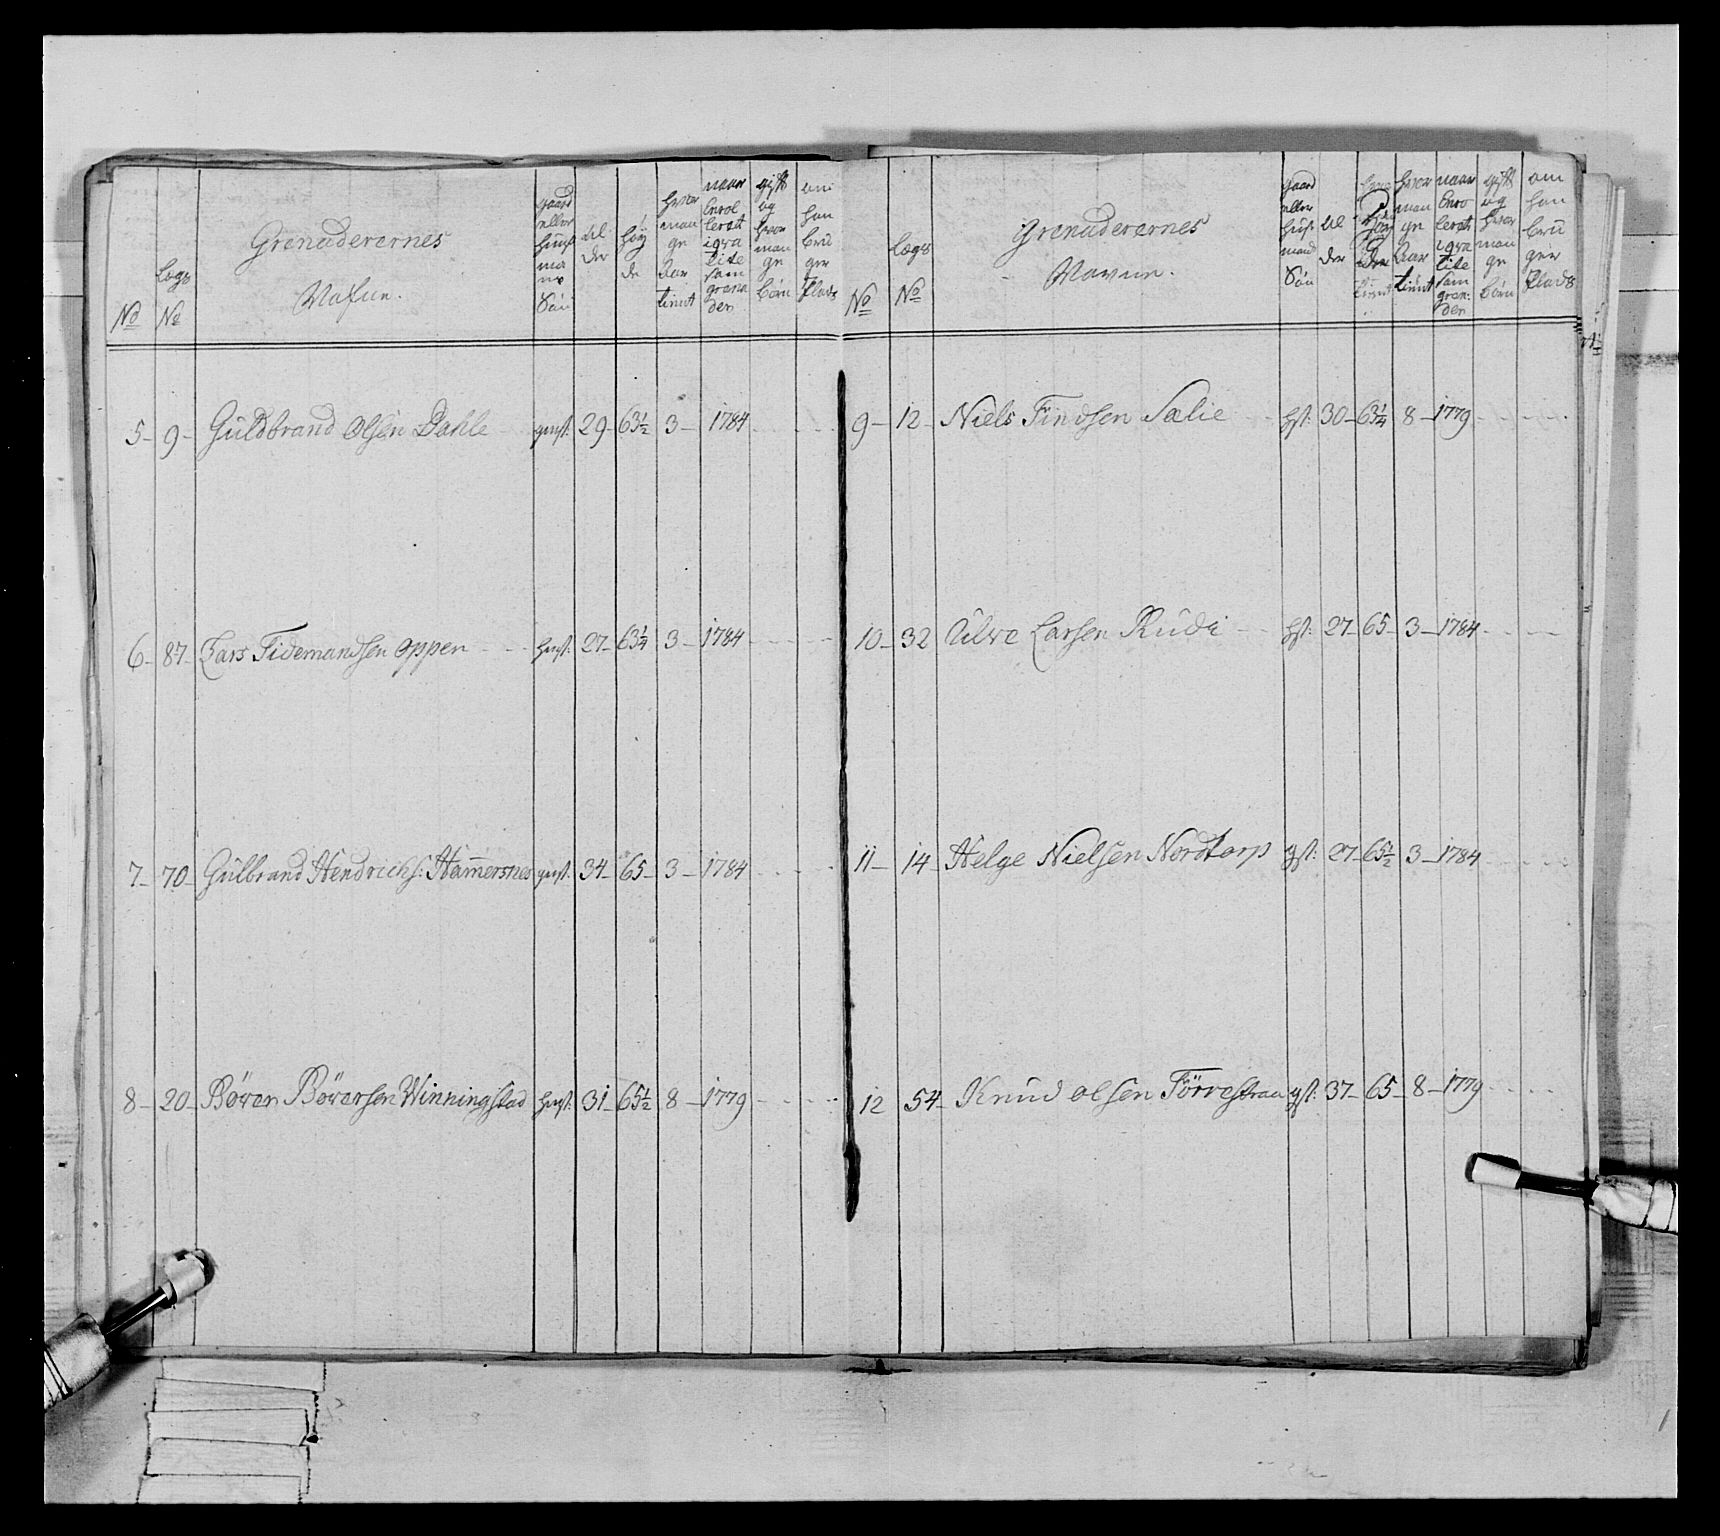 No
Lægs No
Grenaderernes Nafne.
gaard eller huusmands Søn
Alder
høyde
hvor mange Aar tient
naar Enrolleret igra lite som grenader
gift og hvor mange børn
om han bruger Plads
5 9 Guldbrand Olsen Dahle 29 63½ 3 1784
6 87 Lars Tidemandsen Oppen 27 63¼ 3 1784
7 70 Gulbrand Hendrichs: Ham̅ersnes 34 65 3 1784
8 20 Börer Börersen Winningstad 31 65½ 8 1779
No
Lægs No
Grenaderernes Navne.
gaard eller huusmand Søn
Alder
hvor mange Aar tient
naar Enrolleret igra lite som gren: der
gift og hvor mange børn
om han bruger Plads
9 12 Niels Findsen Sælie hst: 30 63¼ 8 1779
10 32 Ulve Larsen Rudi hst: 27 65 3 1784
11 14 Helge Nielsen Nordtorp gst: 27 65½ 3 1784
12 54 Knud Olsen Förrestraa gst: 37 65 8 1779